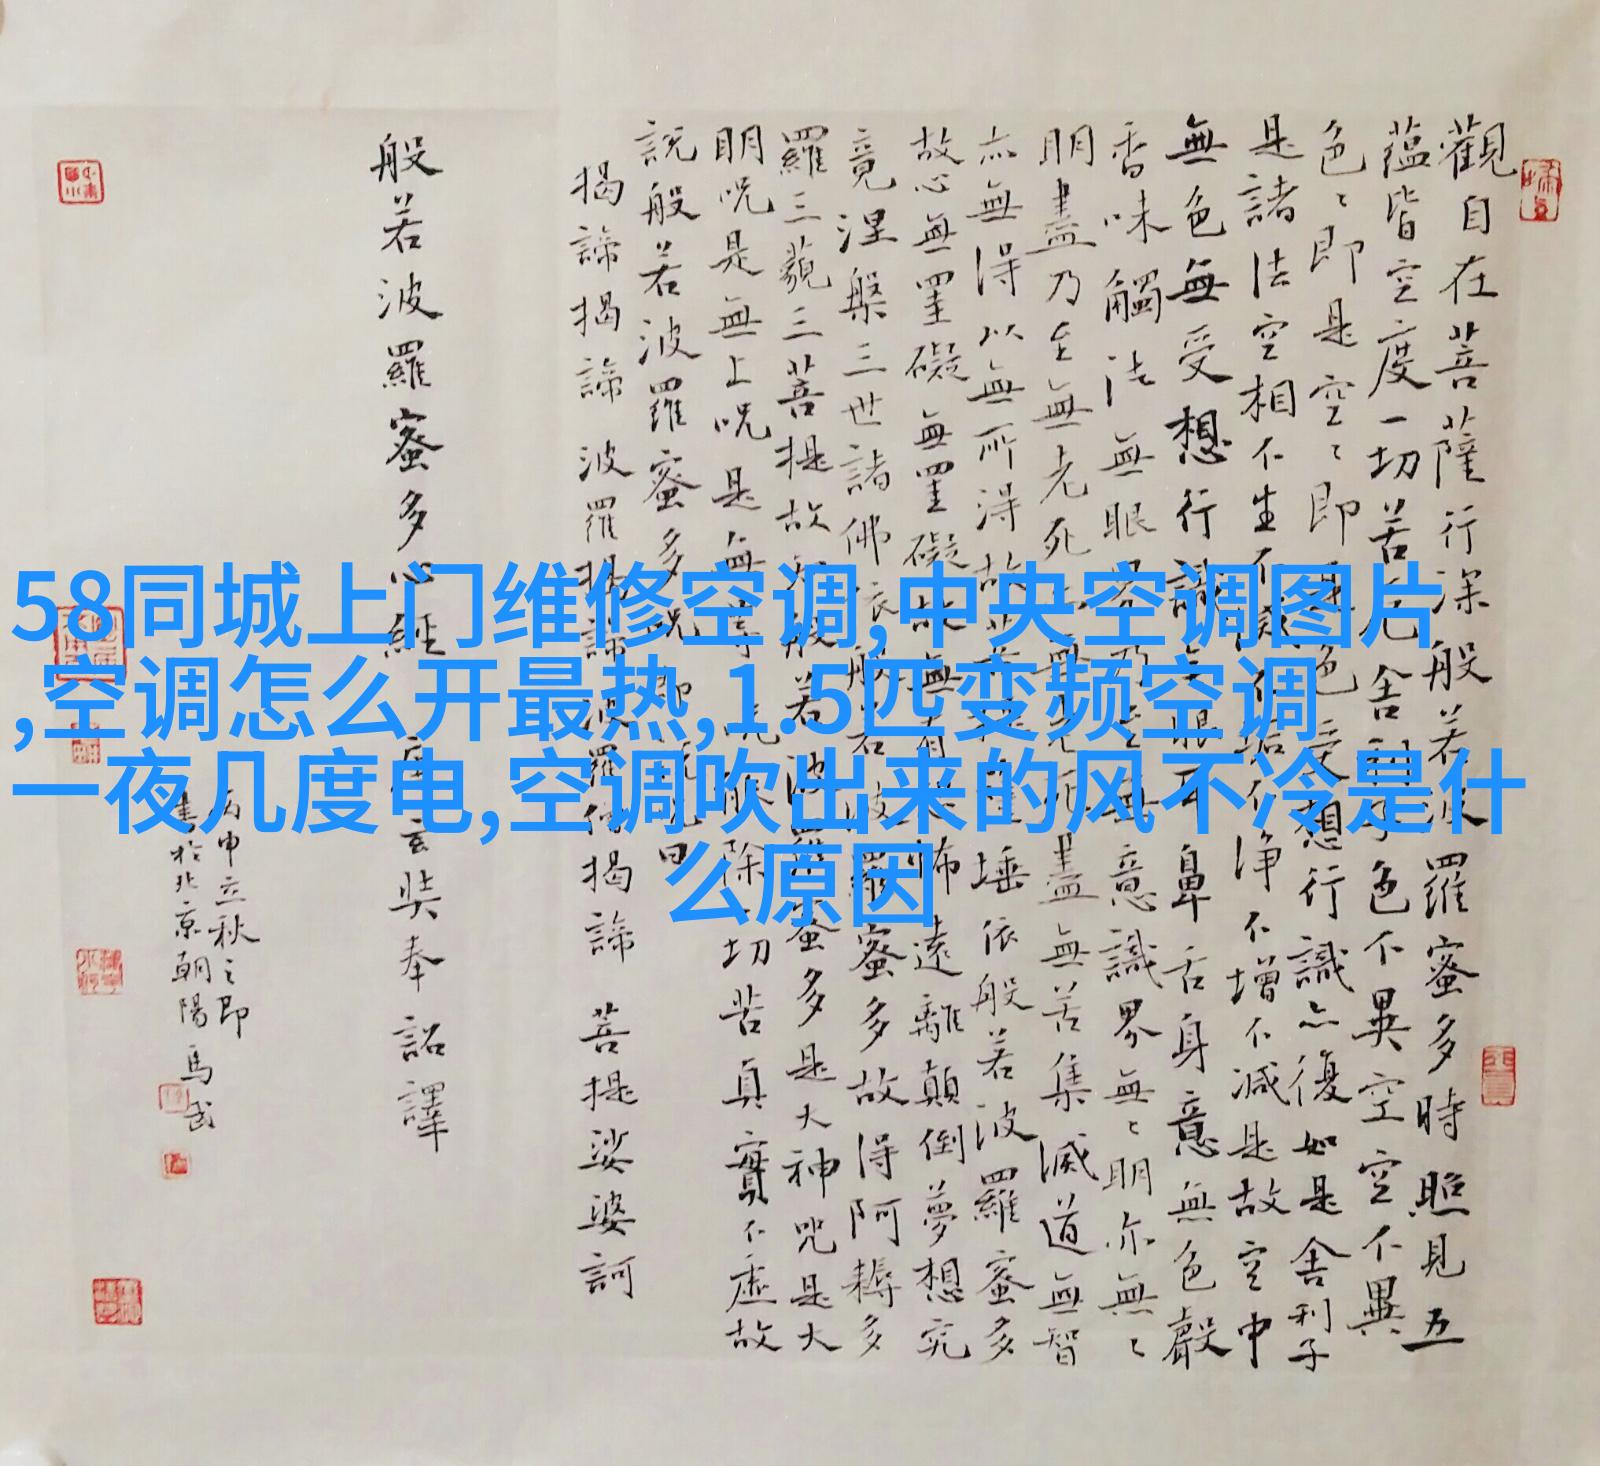 58同城上门维修空调,中央空调图片
,空调怎么开最热,1.5匹变频空调
一夜几度电,空调吹出来的风不冷是什
么原因
觀自在菩薩行深般若波羅蜜多時照見五
蘊皆空度一切苦厄舍利子色不異空空不異
色〻即是空〻即是色受想行識亦復如是舍利子
是諸法空相不生不滅不垢不淨不增不減是故空中
無色無受想行識無眼耳鼻舌身意無色聲
香味觸法無眼界乃至無意識界無〻明亦無〻
明盡乃至無老死亦無老死盡無苦集滅道無智
亦無得以無所得故菩提薩埵依般若波羅蜜多
故心無罣礙無罣礙故無有恐怖遠離顛倒夢想究
竟涅槃三世諸佛依般若波羅蜜多故得阿耨多
羅三藐三菩提故知般若波羅蜜多是大神咒是大
明呪是無上呪是無等呪能除一切苦真實不虛故
說般若波羅蜜多呪即說呪曰
揭諦揭諦 波羅揭諦 波羅僧揭諦 菩提娑婆訶
般若波羅蜜多心經 唐玄奘奉詔譯
丙申立秋之即
書於北京朝陽 馬